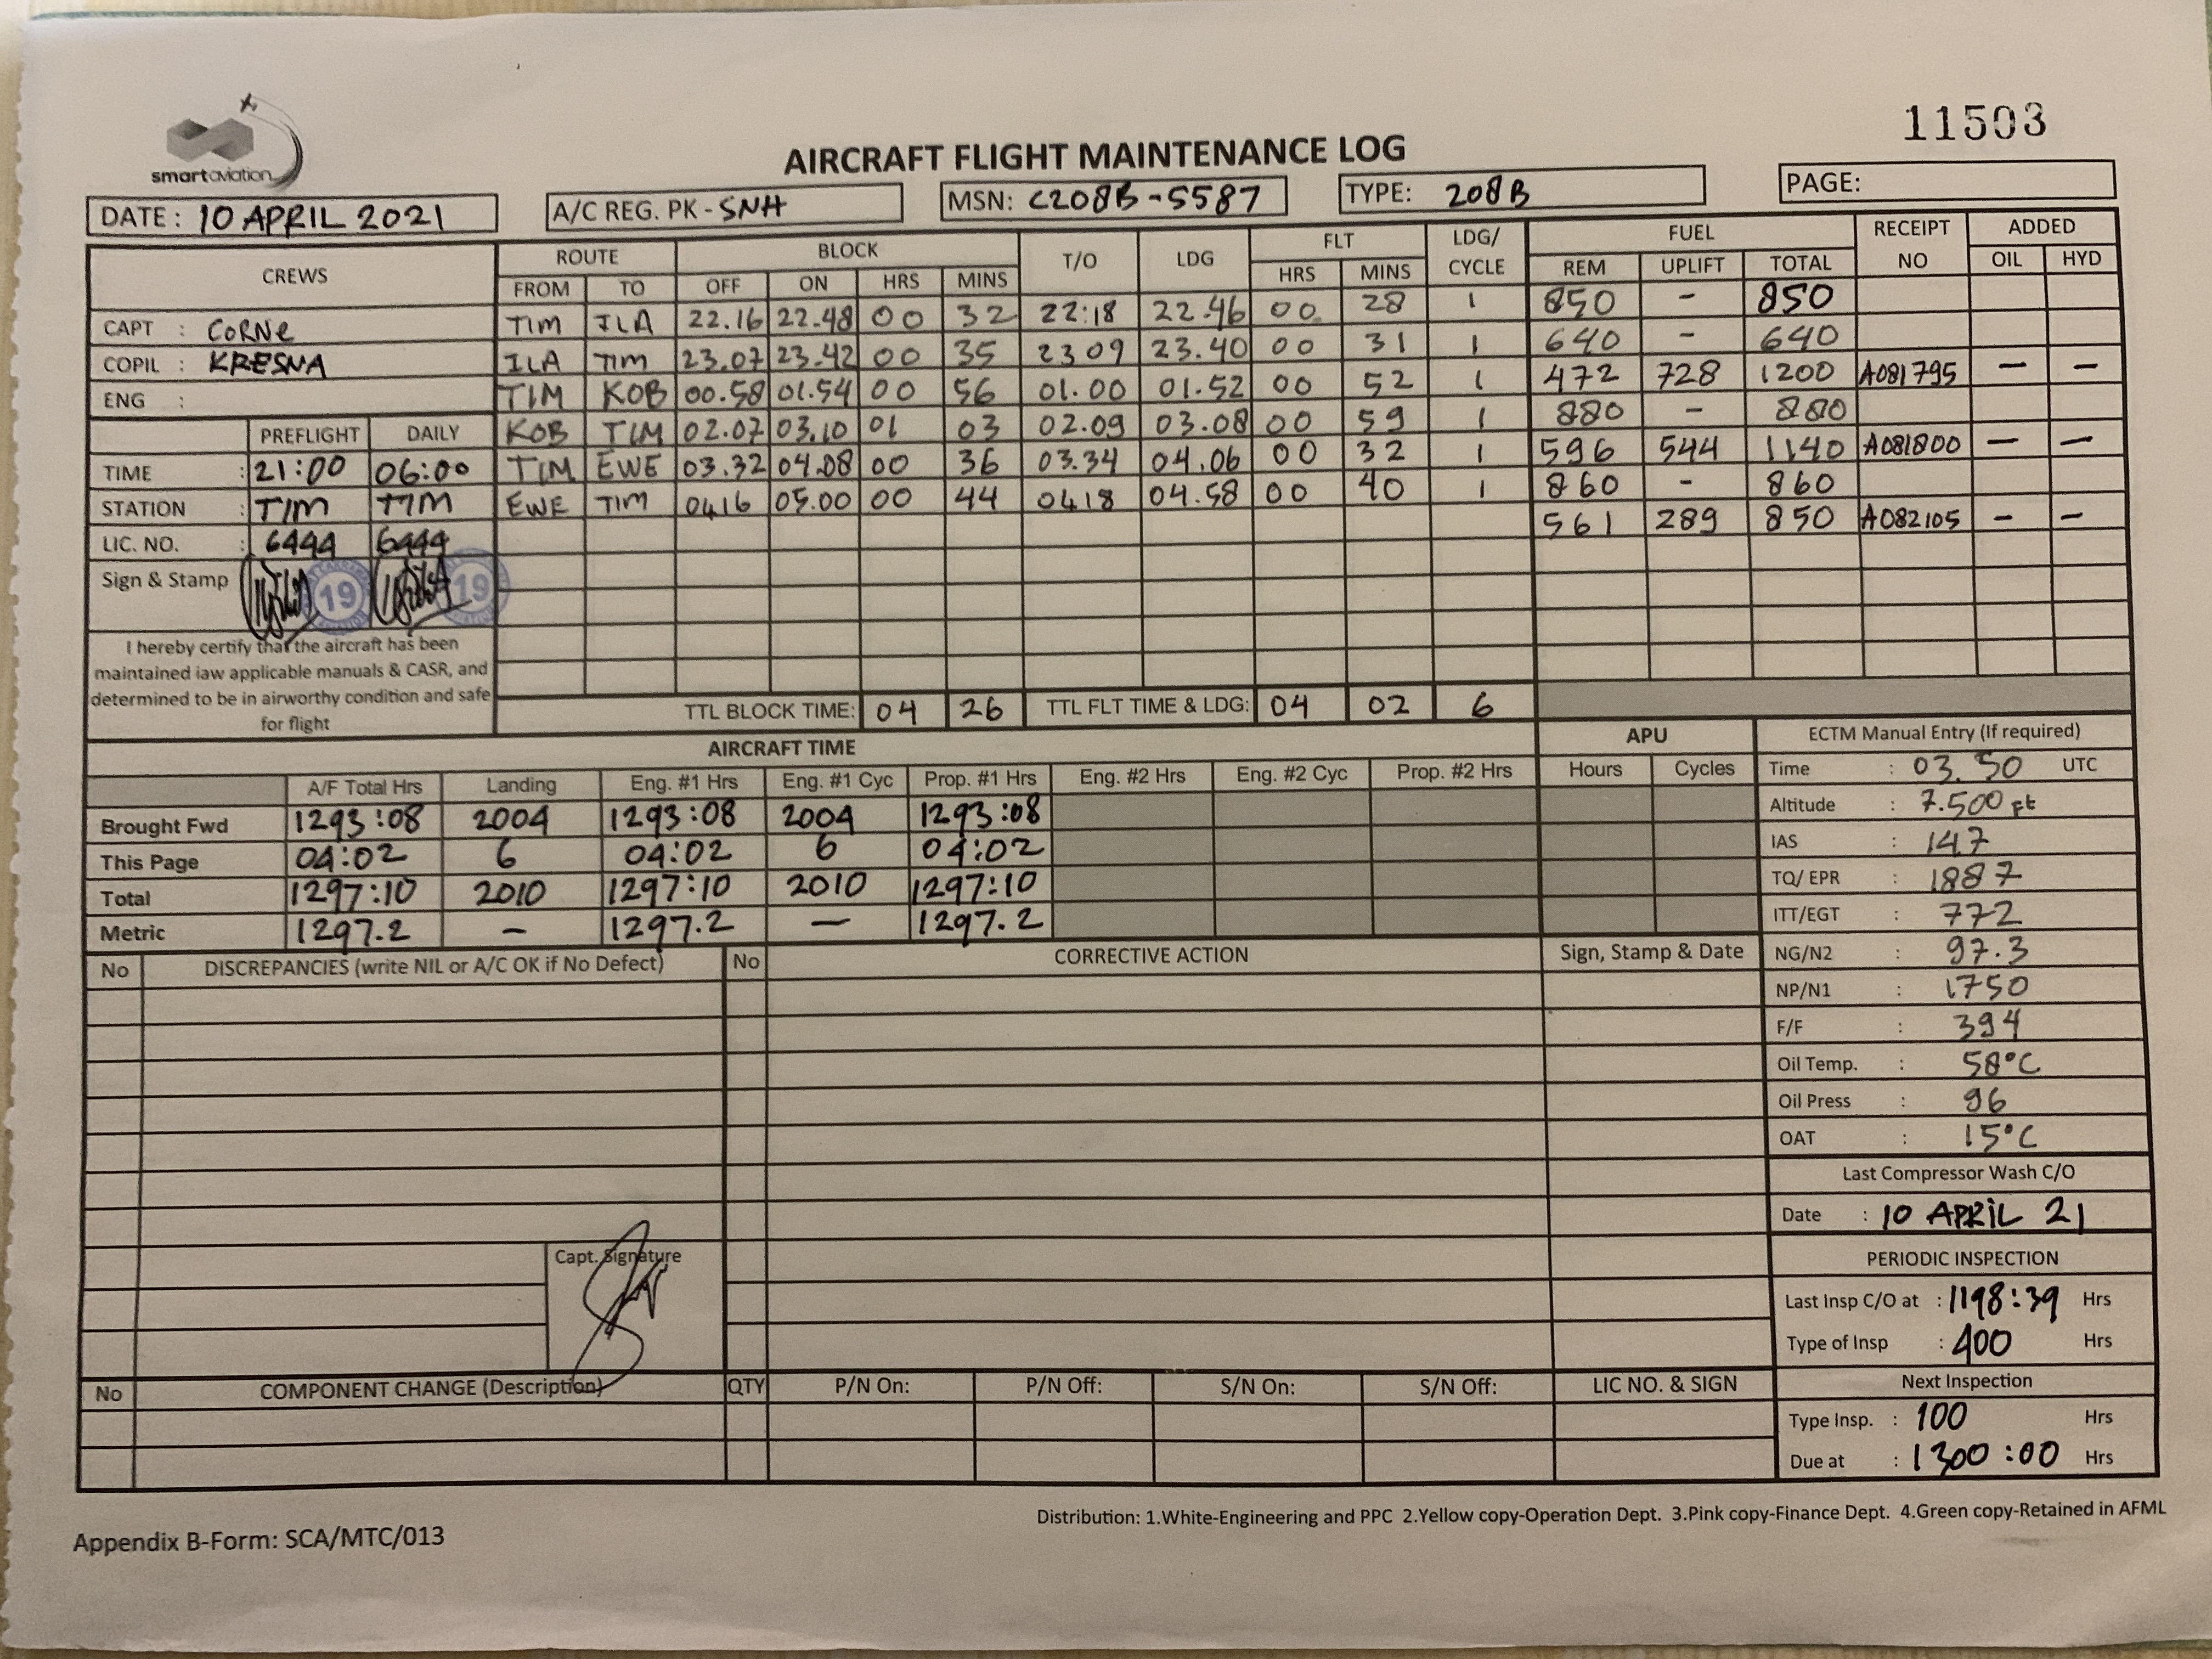 11503
smart aviation
AIRCRAFT FLIGHT MAINTENANCE LOG
DATE : 10 APRIL 2021 A/C REG. PK - SNH MSN: C208B-5587 TYPE: 208B PAGE:
CREWS ROUTE BLOCK T/O LDG FLT LDG/ CYCLE FUEL RECEIPT NO ADDED
FROM TO OFF ON HRS MINS HRS MINS REM UPLIFT TOTAL OIL HYD
CAPT : CORNE TIM ILA 22.16 22.48 00 32 22:18 22.46 00 28 1 850 - 850
COPIL : KRESNA ILA TIM 23.07 23.42 00 35 2309 23.40 00 31 1 640 - 640
ENG : TIM KOB 00.58 01.54 00 56 01.00 01.52 00 52 1 472 728 1200 A081795 — —
PREFLIGHT DAILY KOB TIM 02.07 03.10 01 03 02.09 03.08 00 59 1 880 - 880
TIME : 21:00 06:00 TIM EWE 03.32 04.08 00 36 03.34 04.06 00 32 1 596 544 1140 A081800 — —
STATION : TIM TIM EWE TIM 0416 05.00 00 44 0418 04.58 00 40 1 860 - 860
LIC. NO. : 6444 6444 561 289 850 A082105 — —
Sign & Stamp 19 19
I hereby certify that the aircraft has been
maintained iaw applicable manuals & CASR, and
determined to be in airworthy condition and safe
for flight
TTL BLOCK TIME: 04 26 TTL FLT TIME & LDG: 04 02 6
AIRCRAFT TIME APU
A/F Total Hrs Landing Eng. #1 Hrs Eng. #1 Cyc Prop. #1 Hrs Eng. #2 Hrs Eng. #2 Cyc Prop. #2 Hrs Hours Cycles
Brought Fwd 1293:08 2004 1293:08 2004 1293:08
This Page 04:02 6 04:02 6 04:02
Total 1297:10 2010 1297:10 2010 1297:10
Metric 1297.2 — 1297.2 — 1297.2
ECTM Manual Entry (If required)
Time : 03.50 UTC
Altitude : 7.500 ft
IAS : 147
TQ/ EPR : 1887
ITT/EGT : 772
NG/N2 : 97.3
NP/N1 : 1750
F/F : 394
Oil Temp. : 58°C
Oil Press : 96
OAT : 15°C
Last Compressor Wash C/O
Date : 10 APRIL 21
PERIODIC INSPECTION
Last Insp C/O at : 1198:39 Hrs
Type of Insp : 400 Hrs
Next Inspection
Type Insp. : 100 Hrs
Due at : 1300:00 Hrs
No DISCREPANCIES (write NIL or A/C OK if No Defect) No CORRECTIVE ACTION Sign, Stamp & Date
Capt. Signature
No COMPONENT CHANGE (Description) QTY P/N On: P/N Off: S/N On: S/N Off: LIC NO. & SIGN
Distribution: 1.White-Engineering and PPC 2.Yellow copy-Operation Dept. 3.Pink copy-Finance Dept. 4.Green copy-Retained in AFML
Appendix B-Form: SCA/MTC/013